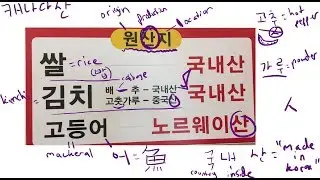 캐나다산
origin
production
location
고추 = hot pepper
원산지
쌀 = rice
국내산
가루 = powder
kimchi
김치
cabbage
배 추 - 국내산
고춧가루 - 중국산
국내산
고등어
노르웨이산
mackerel
어 = 魚
국 내 산 = "made in korea"
country inside
人